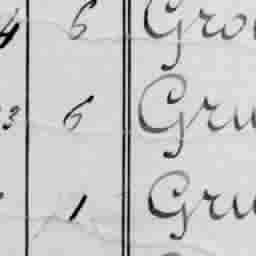 4 6 Gro
23 6 Gru
1 Gru